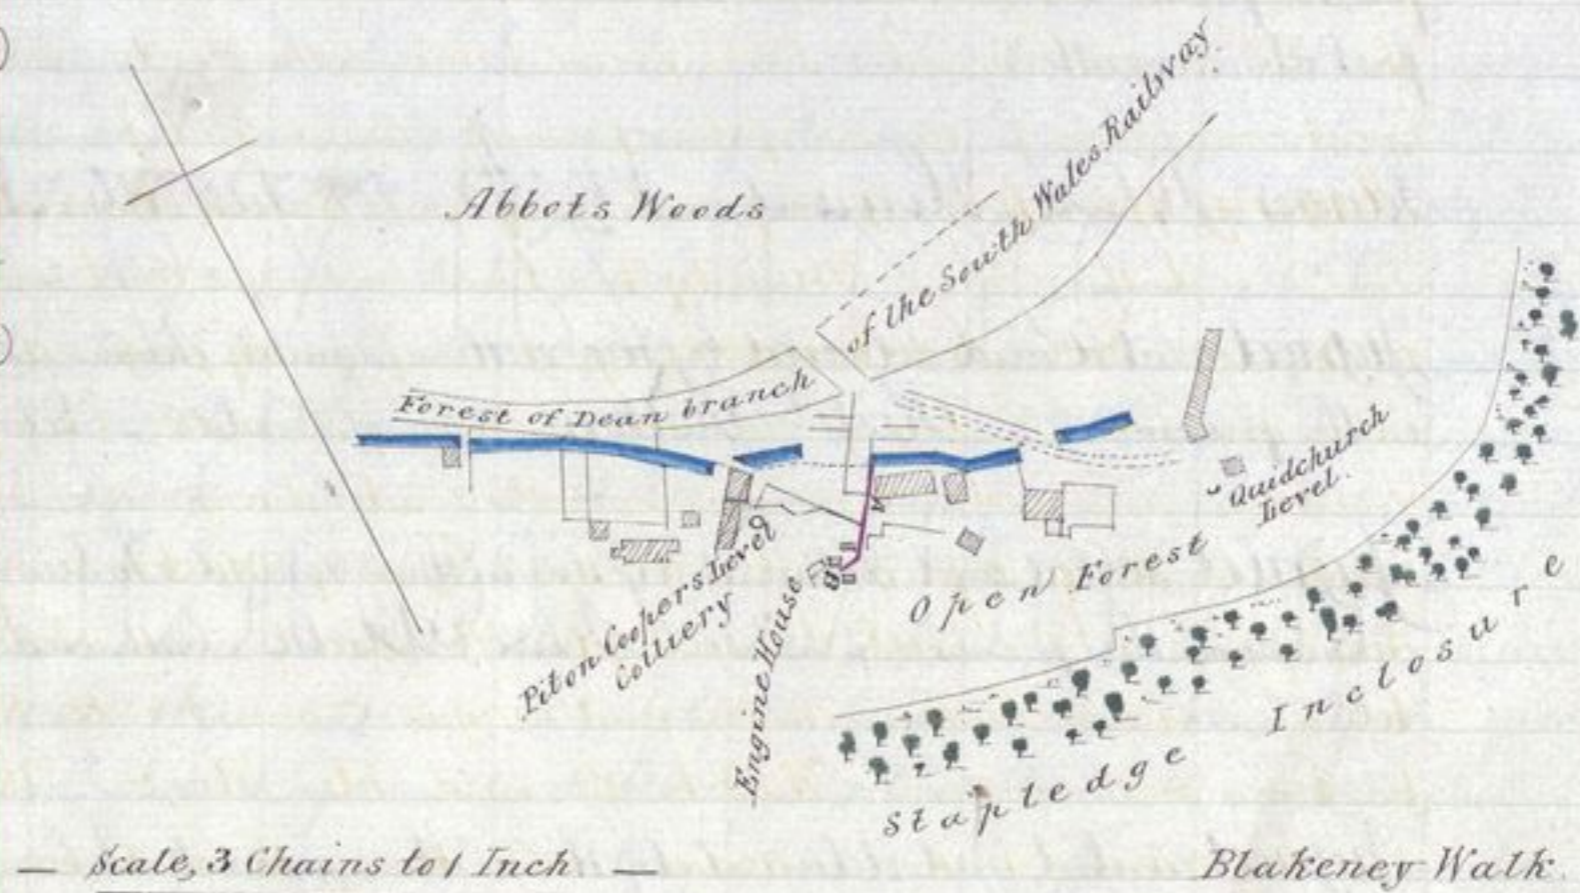 Abbots Woods
Forest of Dean branch
of the South Wales Railway.
Quidchurch
Level.
Pit on Coopers Level
Colliery
Engine House
A
B
Open Forest
Stapledge Inclosure
Scale, 3 Chains to 1 Inch
Blakeney Walk.